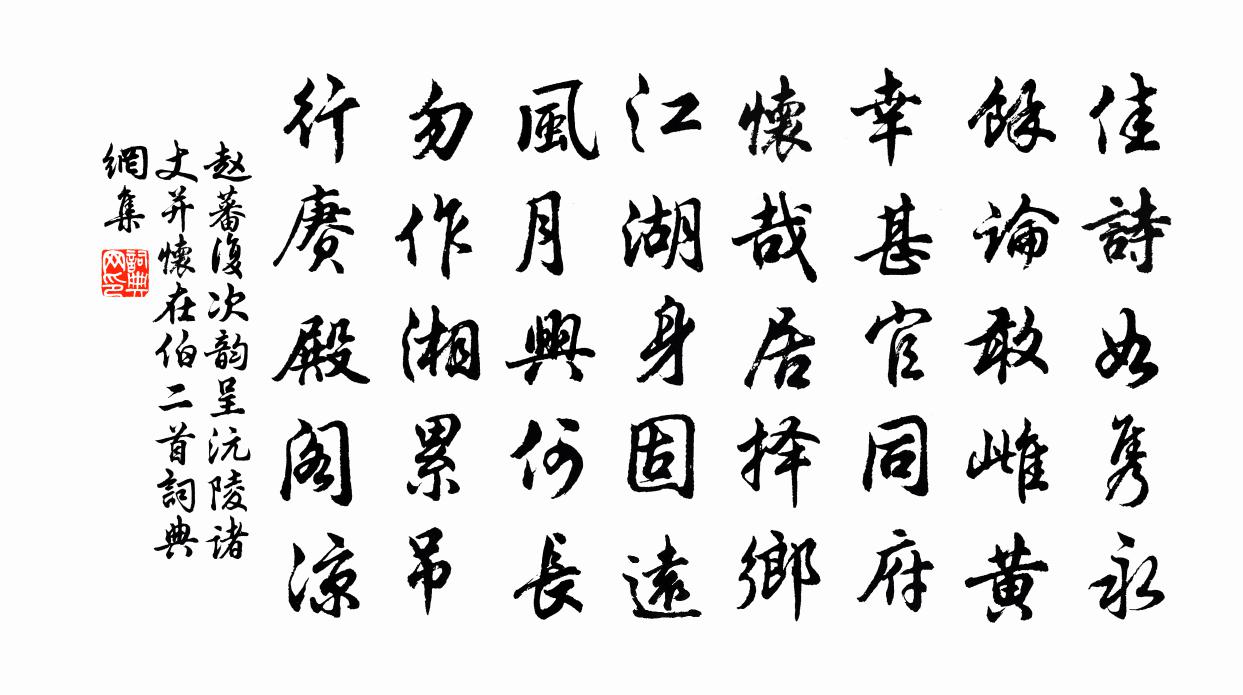 佳詩如雋永
餘論敢雌黃
幸甚官同府
懷哉居择鄉
江湖身固遠
風月興何長
勿作湘累吊
行赓殿阁涼
赵蕃復次韵呈沅陵诸
丈并懷在伯二首詞典
網集
詞典
网印